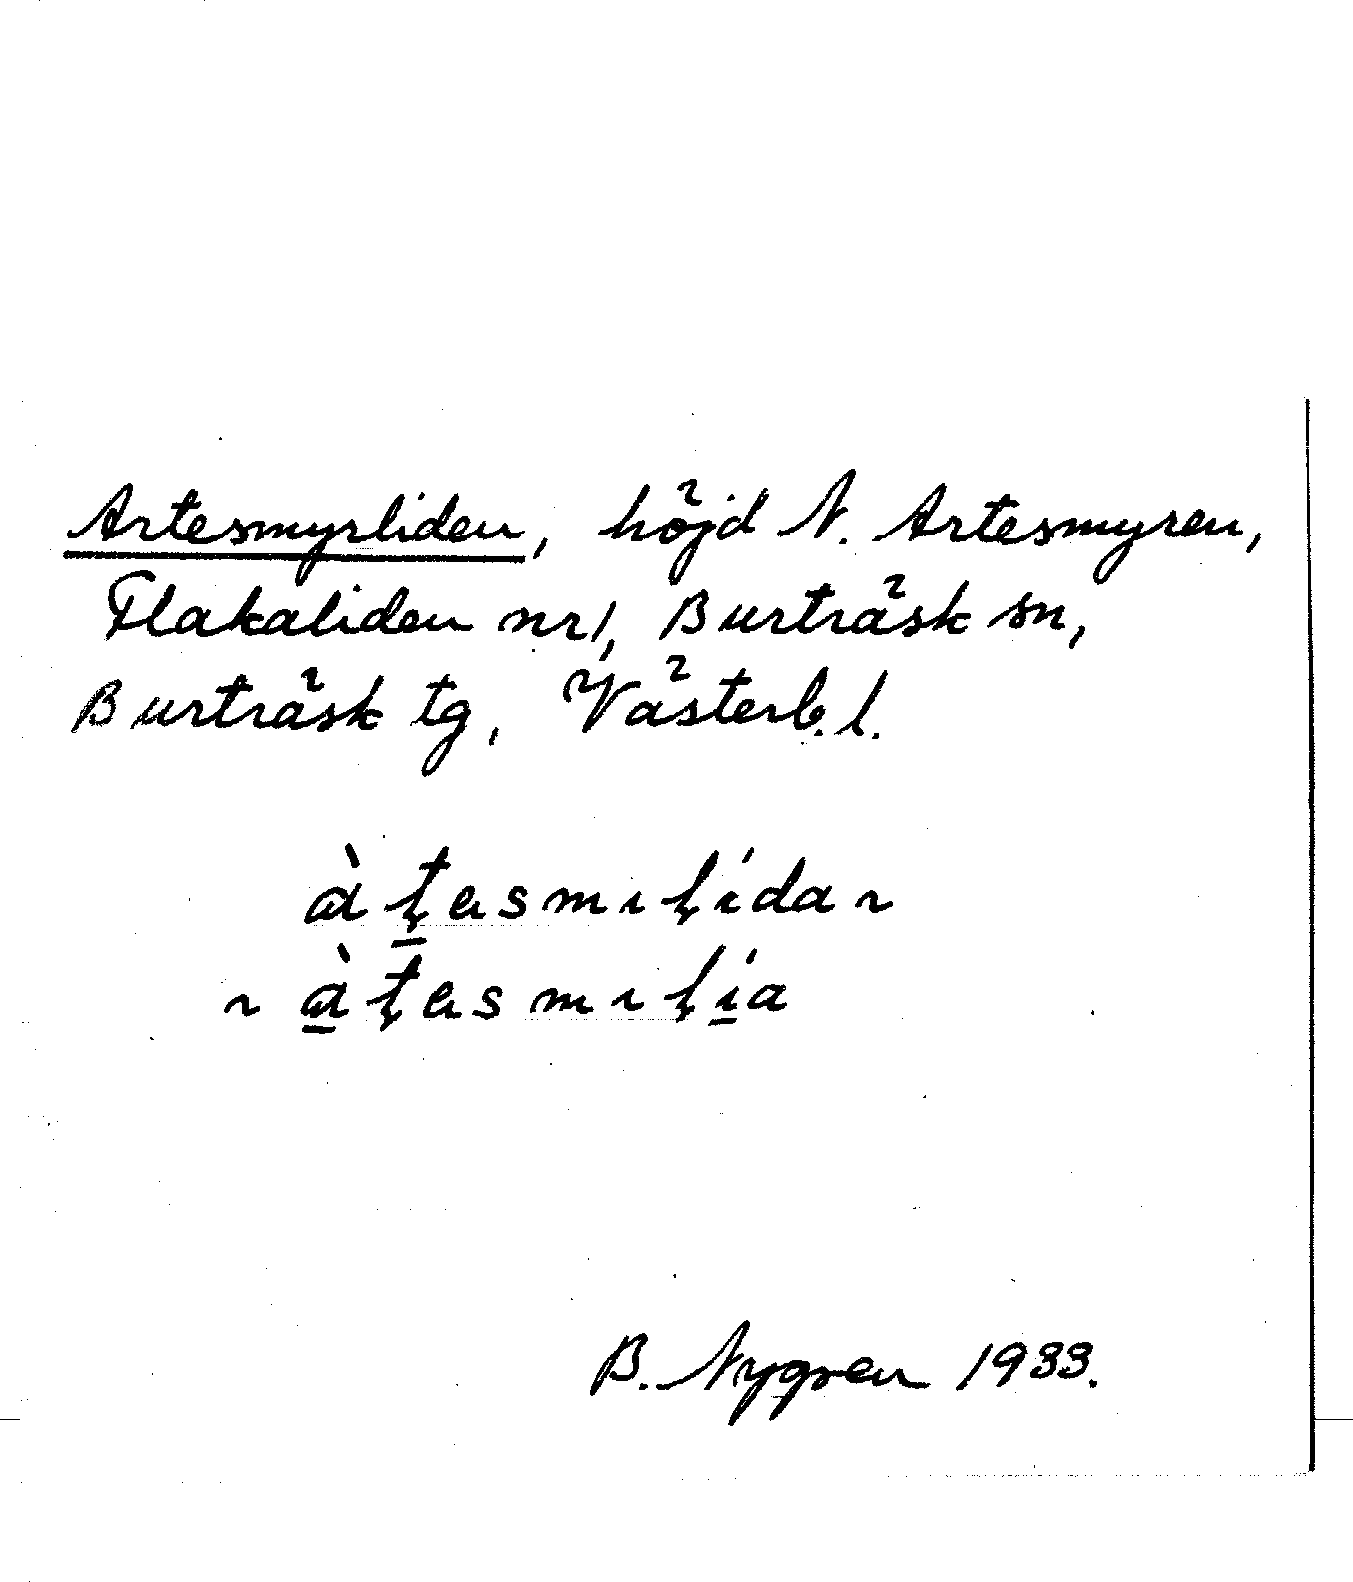 Artesmyrliden, höjd N. Artesmyren,
Flakaliden nr 1, Burträsk sn,
Burträsk tg, Västerb. l.
B. Nygren 1933.